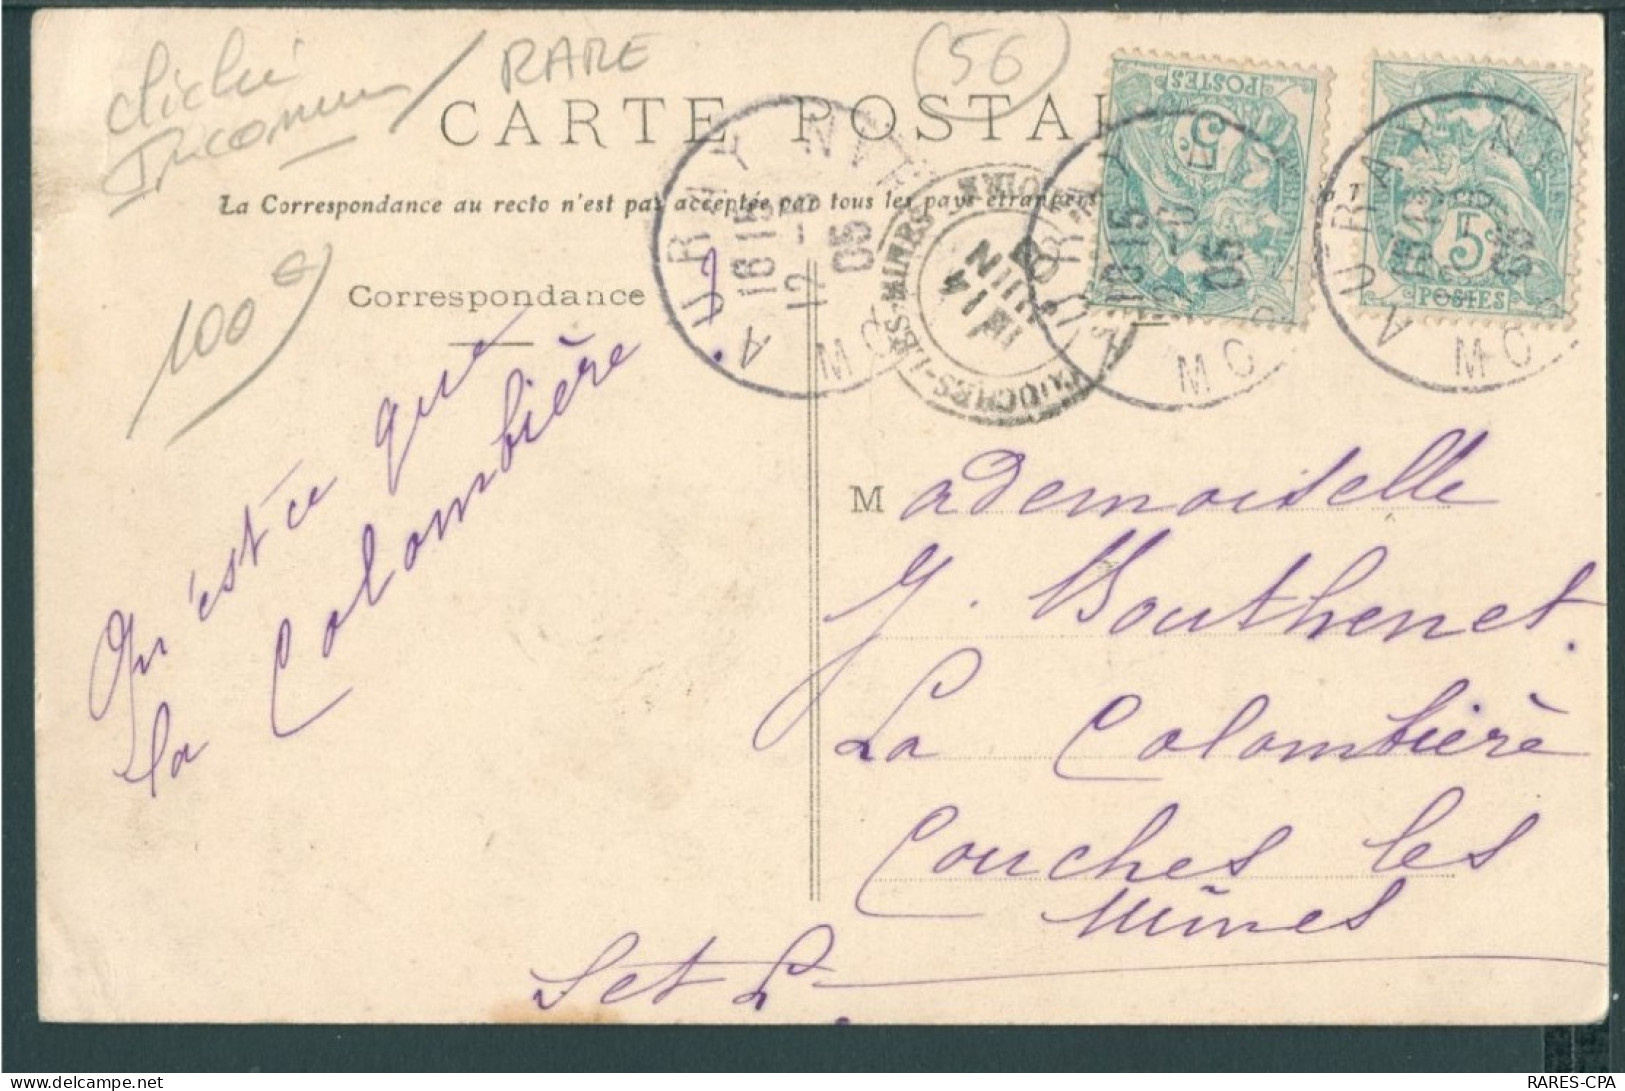 cliché
Incommun / RARE
(56)
CARTE POSTAL
La Correspondance au recto n'est pas acceptée par tous les pays étrangers
100 €
Correspondance
Qu'est-ce que
la Colombière
AURAY
MORBIHAN
18 15
12 - 6
05
COUCHES-LES-MINES
14
JUIN
05
AURAY
MO
18 15
05
POSTES
5
AURAY
MO
POSTES
5
Mademoiselle
J. Bouthenet.
La Colombière
Couches les
Mines
S et L
RARES-CPA